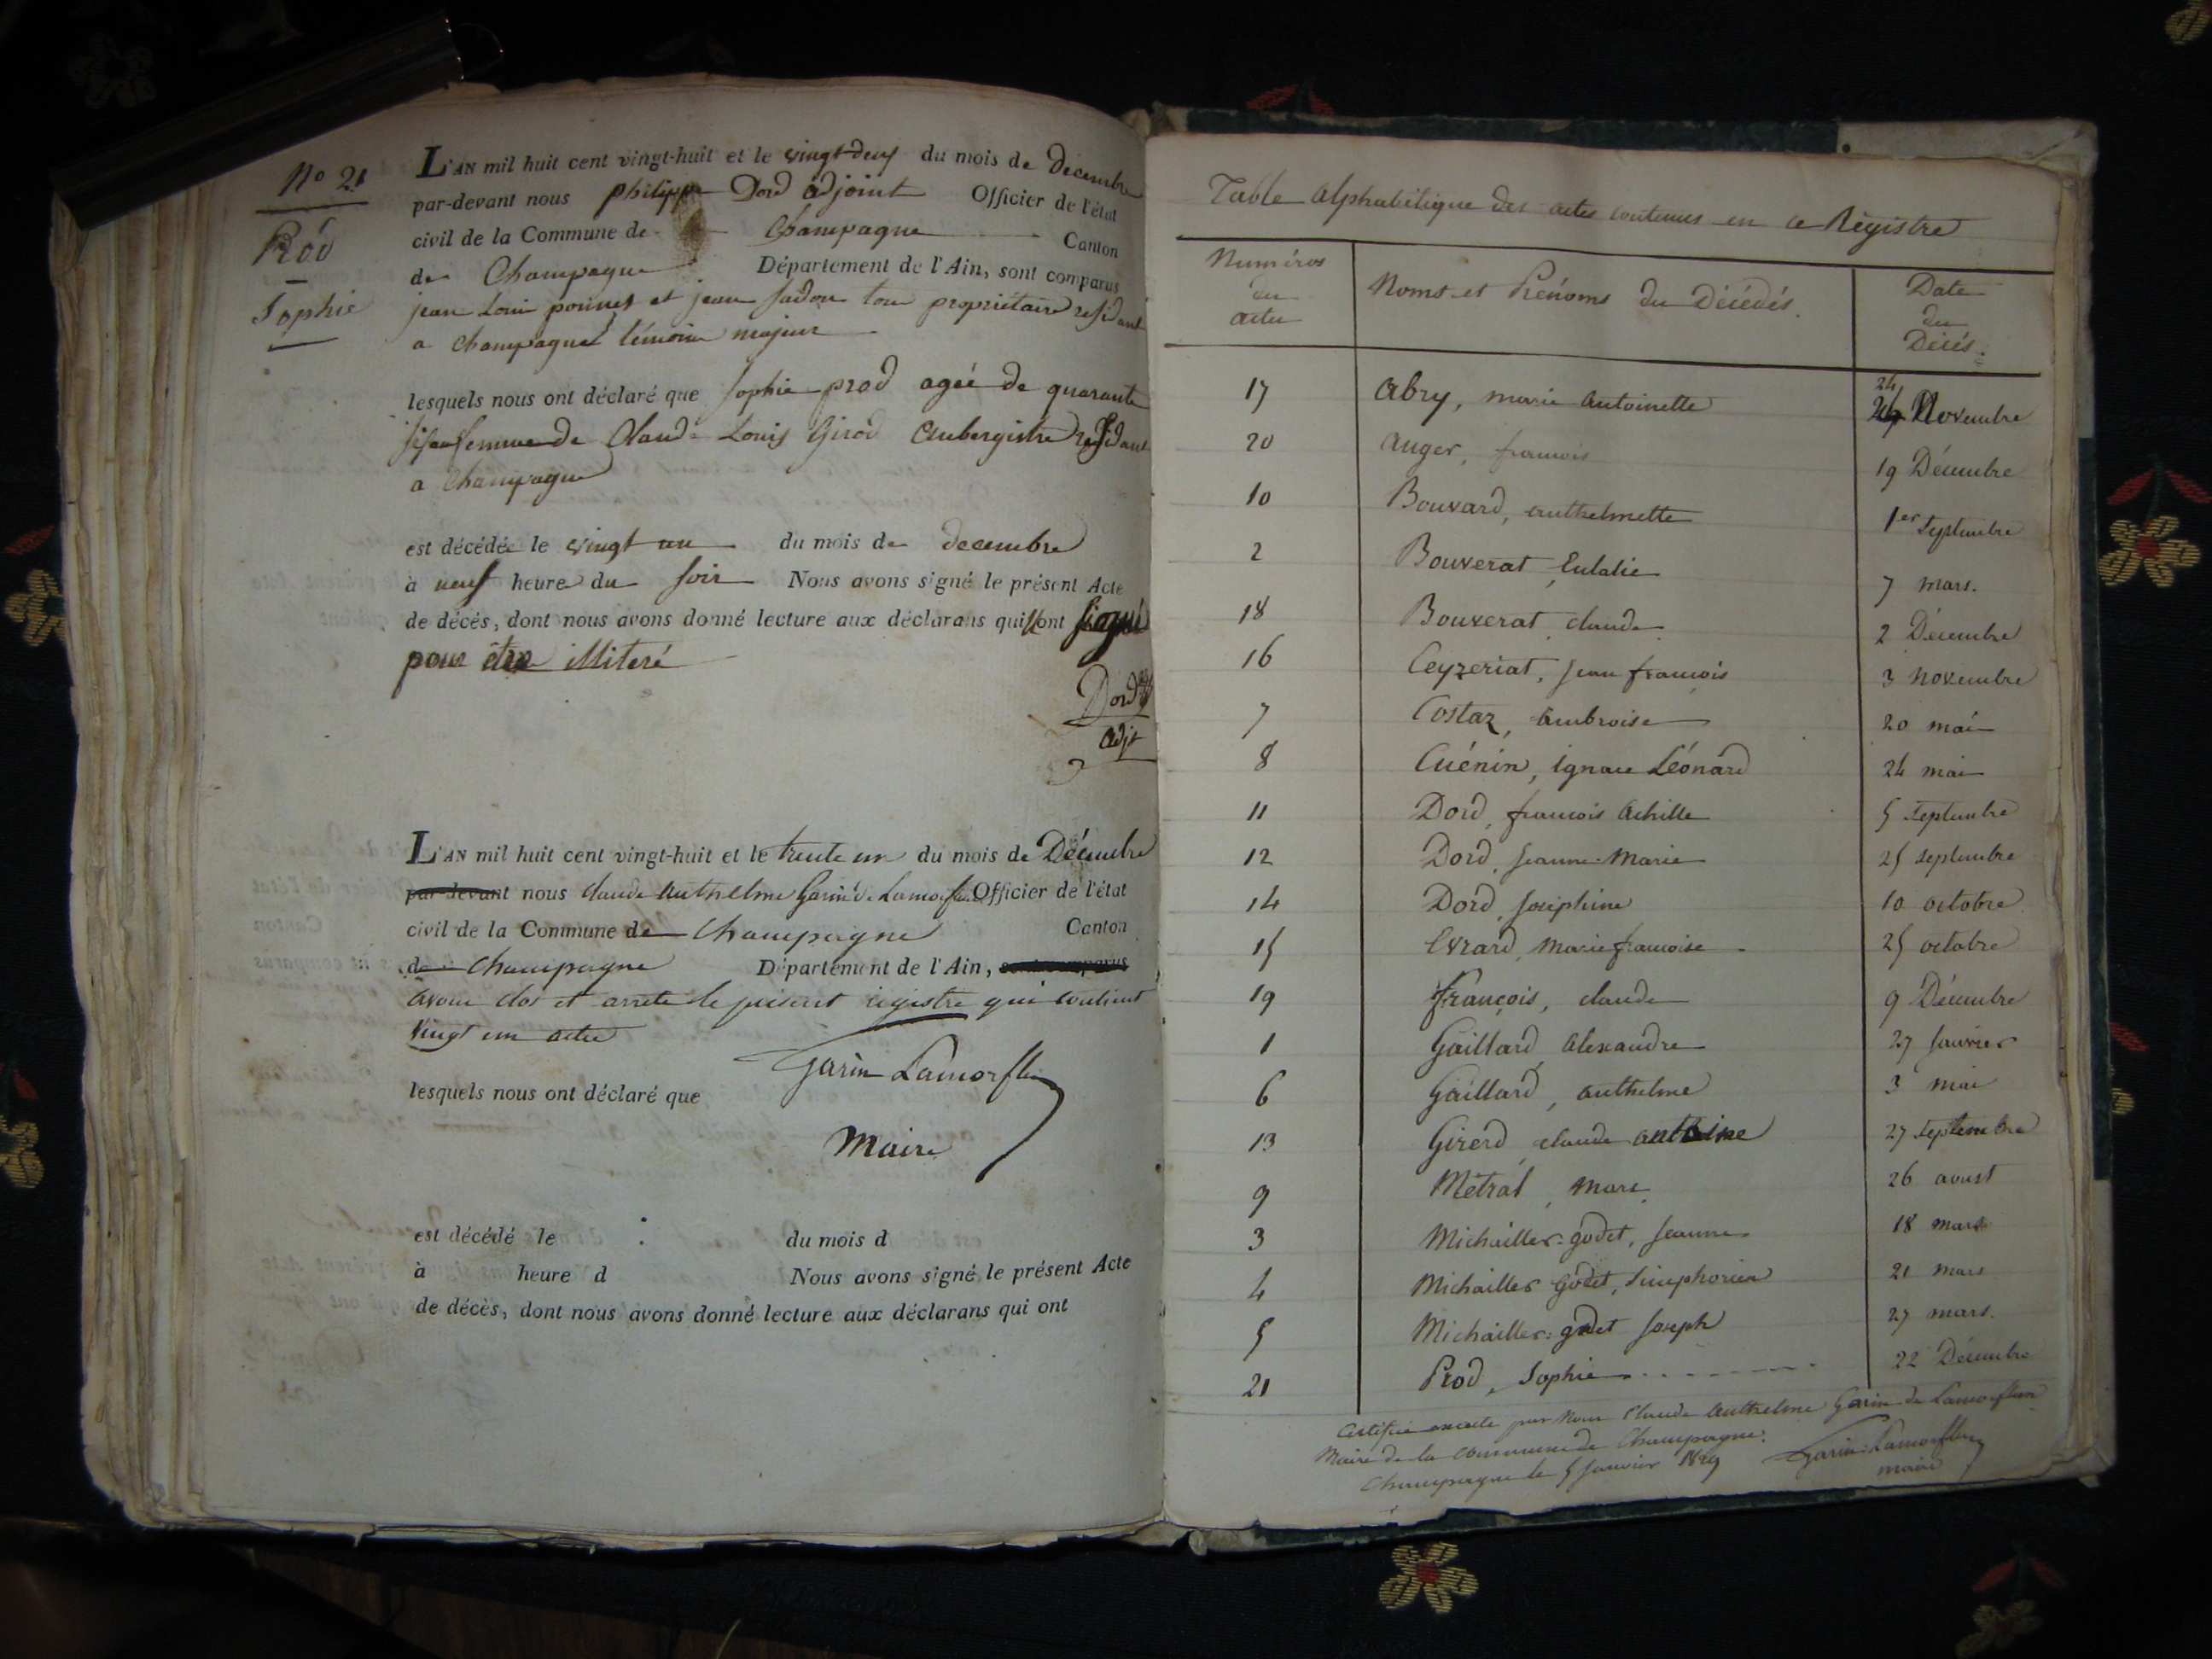 No 21
Prod
Sophie
L'AN mil huit cent vingt-huit et le vingt deux du mois de decembre
par-devant nous philippe Dord adjoint Officier de l'état
civil de la Commune de Champagne Canton
de Champagne Département de l'Ain, sont comparus
jean Loui ponnet et jean tous propriétaire résidant
a Champagne témoin majeur
lesquels nous ont déclaré que Sophie prod agée de quarante
femme de Claude Louis Girod Aubergiste résidant
a Champagne
est décédée le vingt un du mois de decembre
à neuf heure du soir Nous avons signé le présent Acte
de décès, dont nous avons donné lecture aux déclarans qui ont signé
pour être illiteré
Dord
adjt
L'AN mil huit cent vingt-huit et le trente un du mois de Décembre
par-devant nous claude Anthelme Garin de Lamorflan Officier de l'état
civil de la Commune de Champagne Canton
de Champagne Département de l'Ain, sont comparus
avons clos et arrete le present registre qui contient
vingt un actes
Garin Lamorflan
lesquels nous ont déclaré que
Maire
est décédé le du mois d
à heure d Nous avons signé le présent Acte
de décès, dont nous avons donné lecture aux déclarans qui ont
Table alphabétique des actes contenus en ce Régistre
Numéros des actes Noms et Prénoms des Décédés. Date du Décés.
17 Abry, marie antoinette 24 Novembre
20 Auger, francois 19 Décembre
10 Bouvard, anthelmette 1er Septembre
2 Bouverat, Eulalie 7 mars.
18 Bouverat, claude 2 Décembre
16 Ceyzeriat, jean françois 3 novembre
7 Costaz, ambroise 20 mai
8 Cuénin, ignace Léonard 24 mai
11 Dord, francois Achille 5 septembre
12 Dord, Jeanne-Marie 25 septembre
14 Dord, Joséphine 10 octobre
15 Evrard, marie francoise 25 octobre
19 françois, claude 9 Décembre
1 Gaillard, Alexandre 27 Janvier
6 Gaillard, anthelme 3 mai
13 Girerd, claude antoine 27 septembre
9 Métral, Marc 26 aoust
3 Michailler-godet, Jeanne 18 mars
4 Michailler Godet, Simphorien 21 mars
5 Michailler-godet Joseph 27 mars.
21 Prod, Sophie 22 Décembre
Certifié exacte par nous Claude Anthelme Garin de Lamorflan
Maire de la commune de Champagne.
Champagne le 5 Janvier 1829
Garin Lamorflan
maire